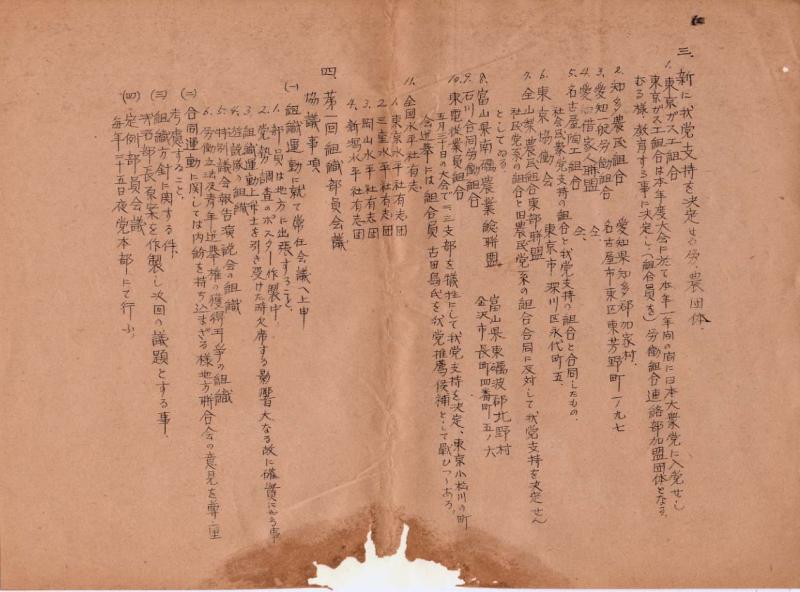 三、新に我党支持を決定せる労農団体、
1. 東京ガス工組合
東京ガス工組合は本年度大会に於て本年一年間の間に日本大衆党に入党せし
むる様教育する事に決定し、(組合員を)労働組合連絡部加盟団体となる
2. 知多農民組合 愛知県知多郡加家村、
3. 愛知一般労働組合 名古屋市東区東芳野町一ノ九七
4. 愛知借家人聯盟 仝、
5. 名古屋陶工組合 仝、
社会民衆党支持の組合と我党支持の組合と合同したもの、
6. 東京協働会 東京市深川区永代町五、
7. 全山梨農民組合東部聯盟
社民党系の組合と旧農民党系の組合合同に反対して我党支持を決定せん
としてゐる
8. 富山県南礪農業組聯盟 富山県東礪波郡北野村
9. 石川合同労働組合 金沢市長町四番町五ノ六
10. 東電従業員組合
五月三十日の大会で二三支部を犠牲にして我党支持を決定、東京小松川の町
会選挙には組合員古田島氏を我党推薦候補として戦ひつゝある、
11. 全国水平社有志
1. 東京水平社有志団
2. 三重水平社有志団
3. 岡山水平社有志団
4. 新潟水平社有志団
四、第一回組織部員会議
協議事項
(一) 組織運動に就て常任会議へ上申
1. 部員は地方に出張すること、
2. 党勢調査のポスター作製中、
3. 組織運動上弁士を引き受けた時欠席する影響大なる故に確実にやる事
4. 遊説隊の組織
5. 特別議会報告演説会の組織
6. 労働立法及青年選挙権の獲得斗争の組織
(二) 合同運動に関しては内紛を持ち込まざる様地方聯合会の意見を尊重
考慮すること
(三) 組織方針に関する件、
我石部長原案を作製し次回の議題とする事、
(四) 定例部員会議、
毎月三十五日夜党本部にて行ふ、